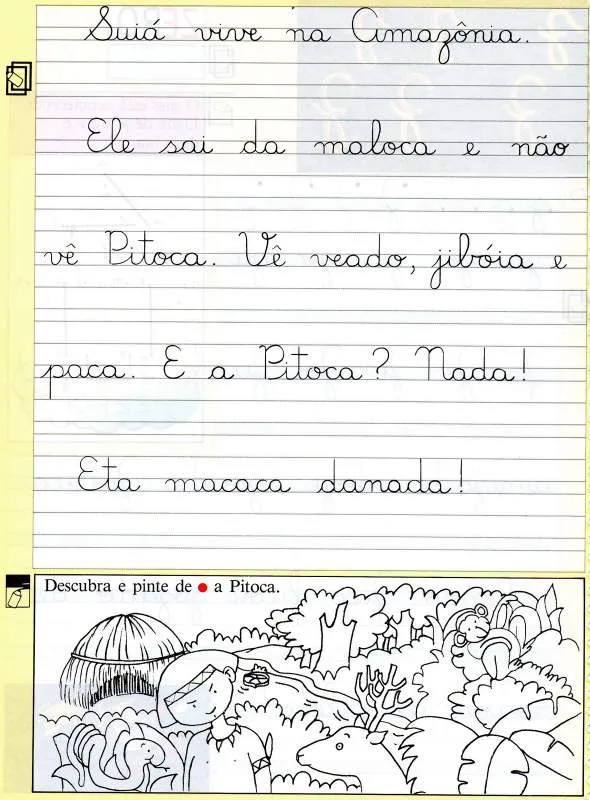 Suiá vive na Amazônia.
Ele sai da maloca e não
vê Pitoca. Vê veado, jibóia e
paca. E a Pitoca? Nada!
Eta macaca danada!
Descubra e pinte de a Pitoca.